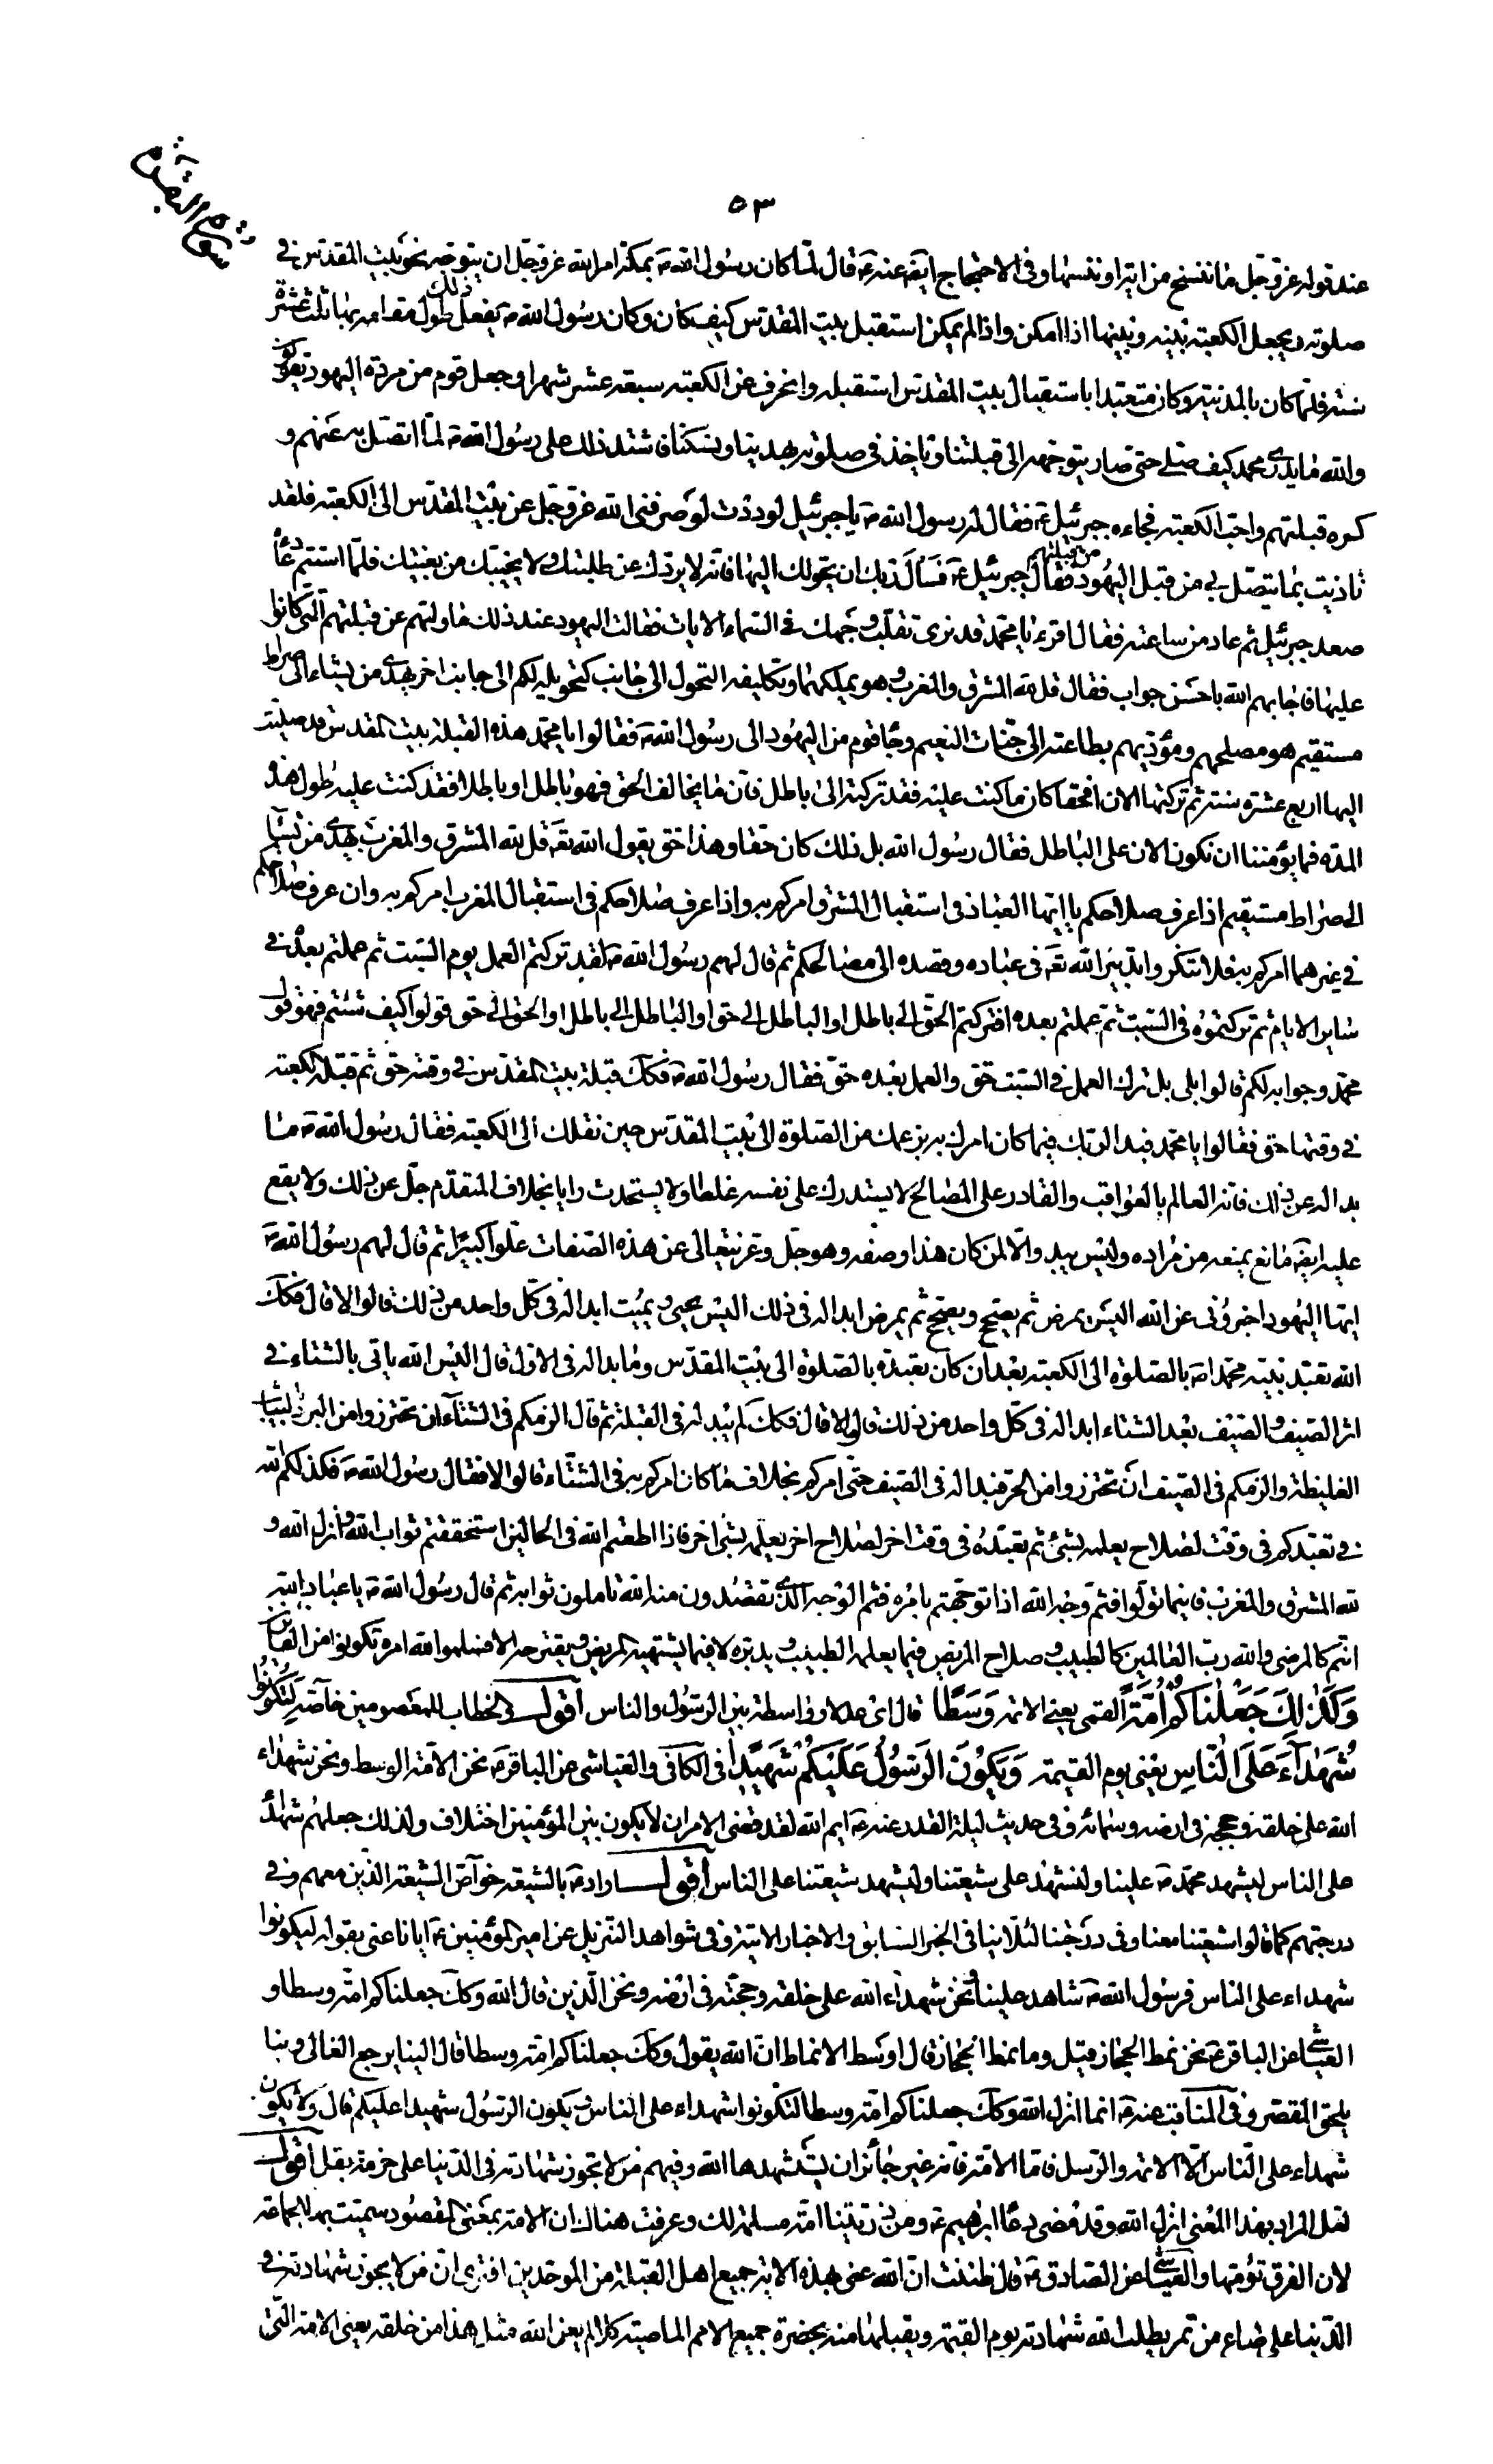 سورة البقرة
٥٣
عند قوله عزوجل ما ننسخ من اية او ننسها وفى الاحتجاج ايضا عنه ع قال لما كان رسول الله ص بمكة امر الله عزوجل ان يتوجه نحو بيت المقدس فى
صلوته ويجعل الكعبة بينه وبينها اذا امكن واذا لم يمكن استقبل بيت المقدس كيف كان وكان رسول الله ص يفعل ذلك طول مقامه بها ثلث عشرة
سنة فلما كان بالمدينة وكان متعبدا باستقبال بيت المقدس استقبله وانحرف عن الكعبة سبعة عشر شهرا وجعل قوم من مردة اليهود يقولون
والله ما يدرى محمد كيف صلى حتى صار يتوجه الى قبلتنا وياخذ فى صلوته بهدينا ونسكنا فاشتد ذلك على رسول الله ص لما اتصل به عنهم و
كره قبلتهم واحب الكعبة فجاءه جبرئيل ع فقال له رسول الله ص يا جبرئيل لوددت لو صرفنى الله عزوجل عن بيت المقدس الى الكعبة فلقد
تاذيت بما يتصل بى من قبل اليهود من قبلتهم فقال جبرئيل ع فسأل ربك ان يحولك اليها فانه لا يردك عن طلبتك ولا يخيبك من بغيتك فلما استتم دعاءه
صعد جبرئيل ثم عاد من ساعته فقال اقرء يا محمد قد نرى تقلب وجهك فى السماء الايات فقالت اليهود عند ذلك ما وليهم عن قبلتهم التى كانوا
عليها فاجابهم الله باحسن جواب فقال قل لله المشرق والمغرب وهو يملكهما وتكليفه التحول الى جانب كتحويله لكم الى جانب اخر يهدى من يشاء الى صراط
مستقيم هو مصلحهم ومؤديهم بطاعته الى جنات النعيم وجاء قوم من اليهود الى رسول الله ص فقالوا يا محمد هذه القبلة بيت المقدس قد صليت
اليها اربع عشرة سنة ثم تركتها الان افحقا كان ما كنت عليه فقد تركته الى باطل فان ما يخالف الحق فهو باطل او باطلا فقد كنت عليه طول هذه
المدة فما يؤمننا ان تكون الان على الباطل فقال رسول الله بل ذلك كان حقا وهذا حق يقول الله تع قل لله المشرق والمغرب يهدى من يشاء
الى صراط مستقيم اذا عرف صلاحكم يا ايها العباد فى استقبال المشرق امركم به واذا عرف صلاحكم فى استقبال المغرب امركم به وان عرف صلاحكم
فى غيرهما امركم به فلا تنكروا تدبير الله تع فى عباده وقصده الى مصالحكم ثم قال لهم رسول الله ص لقد تركتم العمل يوم السبت ثم عملتم بعده فى
ساير الايام ثم تركتموه فى السبت ثم عملتم بعده افتركتم الحق الى باطل او الباطل الى حق او الباطل الى باطل او الحق الى حق قولوا كيف شئتم فهو قول
محمد وجوابه لكم قالوا بلى بل ترك العمل فى السبت حق والعمل بعده حق فقال رسول الله ص فكك قبلة بيت المقدس فى وقته حق ثم قبلة الكعبة
فى وقتها حق فقالوا يا محمد فبدا لربك فيما كان امرك به بزعمك من الصلوة الى بيت المقدس حين نقلك الى الكعبة فقال رسول الله ص ما
بدا له عن ذلك فانه العالم بالعواقب والقادر على المصالح لا يستدرك على نفسه غلطا ولا يستحدث رايا بخلاف المتقدم جل عن ذلك ولا يقع
عليه ايضا مانع يمنعه من مراده وليس يبدو الا لمن كان هذا وصفه وهو جل وعز يتعالى عن هذه الصفات علوا كبيرا ثم قال لهم رسول الله ص
ايها اليهود اخبرونى عن الله اليس يمرض ثم يصح ويصح ثم يمرض ابدا له فى ذلك اليس يحيى ويميت ابدا له فى كل واحد من ذلك قالوا لا قال فكك
الله تعبد نبيه محمدا ص بالصلوة الى الكعبة بعد ان كان تعبده بالصلوة الى بيت المقدس وما بدا له فى الاول قال اليس الله ياتى بالشتاء فى
اثر الصيف والصيف بعد الشتاء ابدا له فى كل واحد من ذلك قالوا لا قال فكك لم يبد له فى القبلة ثم قال الزمكم فى الشتاء ان تحترزوا من البرد بالثياب
الغليظة والزمكم فى الصيف ان تحترزوا من الحر فبدا له فى الصيف حتى امركم بخلاف ما كان امركم به فى الشتاء قالوا لا فقال رسول الله ص فكذلكم الله
فى تعبدكم فى وقت لصلاح يعلمه بشئ ثم تعبده فى وقت اخر لصلاح اخر يعلمه بشئ اخر فاذا اطعتم الله فى الحالين استحققتم ثواب الله وانزل الله و
لله المشرق والمغرب فاينما تولوا فثم وجه الله اذا توجهتم بامره فثم الوجه الذى تقصدون منه الله تاملون ثوابه ثم قال رسول الله ص يا عباد الله
انتم كالمرضى والله رب العالمين كالطبيب وصلاح المريض فيما يعلمه الطبيب ويدبره لا فيما يشتهيه المريض ويقترحه الا فسلموا لله امره تكونوا من الفائزين
وَكَذٰلِكَ جَعَلْنَاكُمْ أُمَّةً القمى يعنى الائمة وَسَطًا قال اى عدلا وواسطة بين الرسول والناس اقول الخطاب للمعصومين خاصة لِتَكُونُوا
شُهَدَآءَ عَلَى النَّاسِ يعنى يوم القيمة وَيَكُونَ الرَّسُولُ عَلَيْكُمْ شَهِيدًا فى الكافى والعياشى عن الباقر ع نحن الامة الوسط ونحن شهداء
الله على خلقه وحججه فى ارضه وسمائه وفى حديث ليلة القدر عنه ع ايم الله لقد قضى الامر ان لا يكون بين المؤمنين اختلاف ولذلك جعلهم شهداء
على الناس ليشهد محمد ص علينا ولنشهد على شيعتنا وليشهد شيعتنا على الناس اقول اراد ع بالشيعة خواص الشيعة الذين معهم وفى
درجتهم كما قالوا شيعتنا معنا وفى درجتنا لئلا ينافى الخبر السابق والاخبار الاتية وفى شواهد التنزيل عن امير المؤمنين ع ايانا عنى بقوله لتكونوا
شهداء على الناس فرسول الله ص شاهد علينا ونحن شهداء الله على خلقه وحجته فى ارضه ونحن الذين قال الله وكك جعلناكم امة وسطا و
العياشى عن الباقر ع نحن نمط الحجاز قيل وما نمط الحجاز قال اوسط الانماط ان الله يقول وكك جعلناكم امة وسطا قال الينا يرجع الغالى وبنا
يلحق المقصر وفى المناقب عنه ع انما انزل الله وكك جعلناكم امة وسطا لتكونوا شهداء على الناس ويكون الرسول شهيدا عليكم قال ولا يكون
شهداء على الناس الا الائمة والرسل فاما الامة فانه غير جائز ان يستشهدها الله وفيهم من لا تجوز شهادته فى الدنيا على حزمة بقل اقول
لعل المراد بهذا المعنى انزل الله وقد مضى دعاء ابرهيم ع ومن ذريتنا امة مسلمة لك وعرفت هناك ان الامة بمعنى المقصود سميت بها الجماعة
لان الفرق تؤمها والعياشى عن الصادق ع قال ظننت ان الله عنى بهذه الاية جميع اهل القبلة من الموحدين افترى ان من لا يجوز شهادته فى
الدنيا على صاع من تمر يطلب الله شهادته يوم القيمة ويقبلها منه بحضرة جميع الامم الماضية كلا لم يعن الله مثل هذا من خلقه يعنى الامة التى